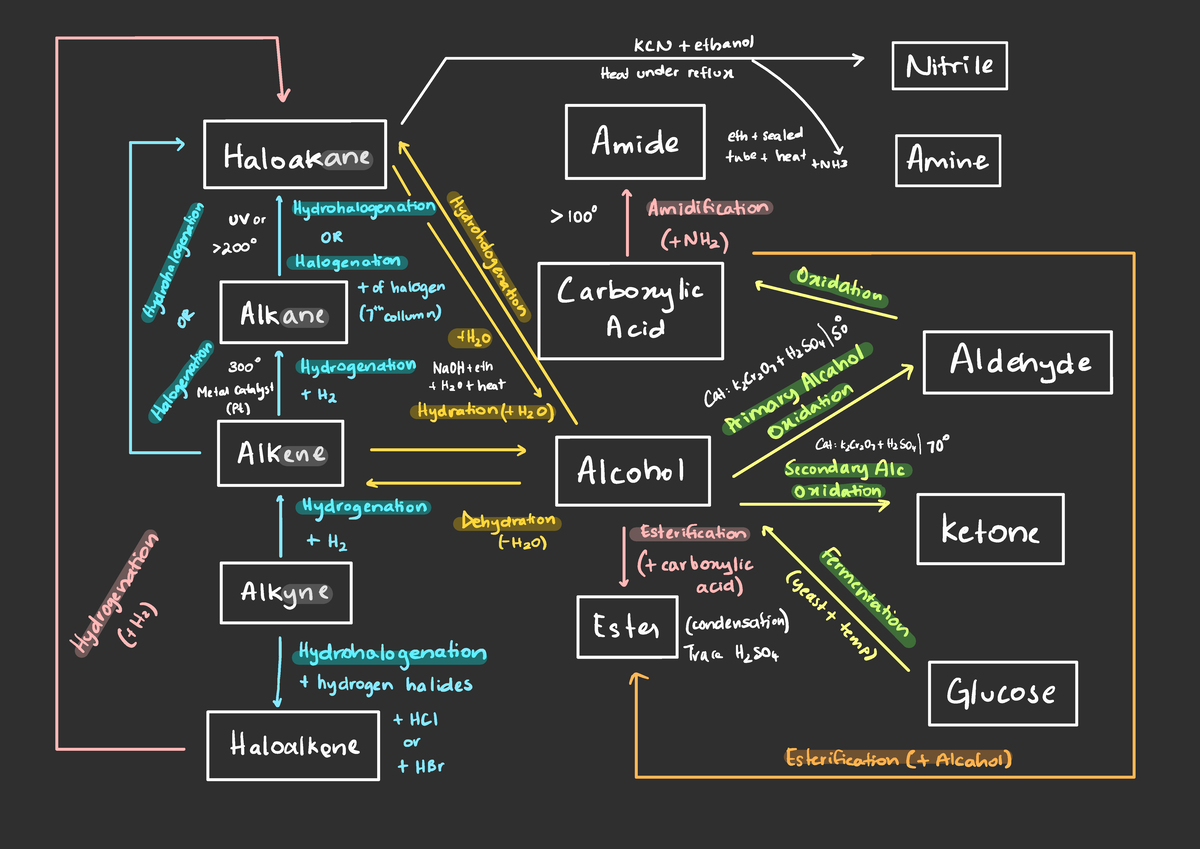 KCN + ethanol
Heat under reflux
Nitrile
Haloakane
Amide
eth + sealed
tube + heat
+NH3
Amine
UV or
>200°
Hydrohalogenation
OR
Halogenation
+ of halogen
(7th collumn)
Hydrohalogenation
OR
Halogenation
Hydrohdogenation
>100°
Amidification
(+NH2)
Carboxylic
Acid
Oxidation
Alkane
300°
Metal Catalyst
(Pt)
Hydrogenation
+ H2
+H2O
NaOH + eth
+ H2O + heat
Hydration (+ H2O)
Cat: K2Cr2O7 + H2SO4 | 50°
Primary Alcohol
Oxidation
Aldehyde
Alkene
Alcohol
Cat: K2Cr2O7 + H2SO4 | 70°
Secondary Alc
Oxidation
Hydrogenation
+ H2
Dehydration
(-H2O)
Esterification
(+ carboxylic
acid)
Ketone
Hydrogenation
(+H2)
Alkyne
Ester
(condensation)
Trace H2SO4
Fermentation
(yeast + temp)
Hydrohalogenation
+ hydrogen halides
Glucose
Haloalkene
+ HCl
or
+ HBr
Esterification (+ Alcohol)